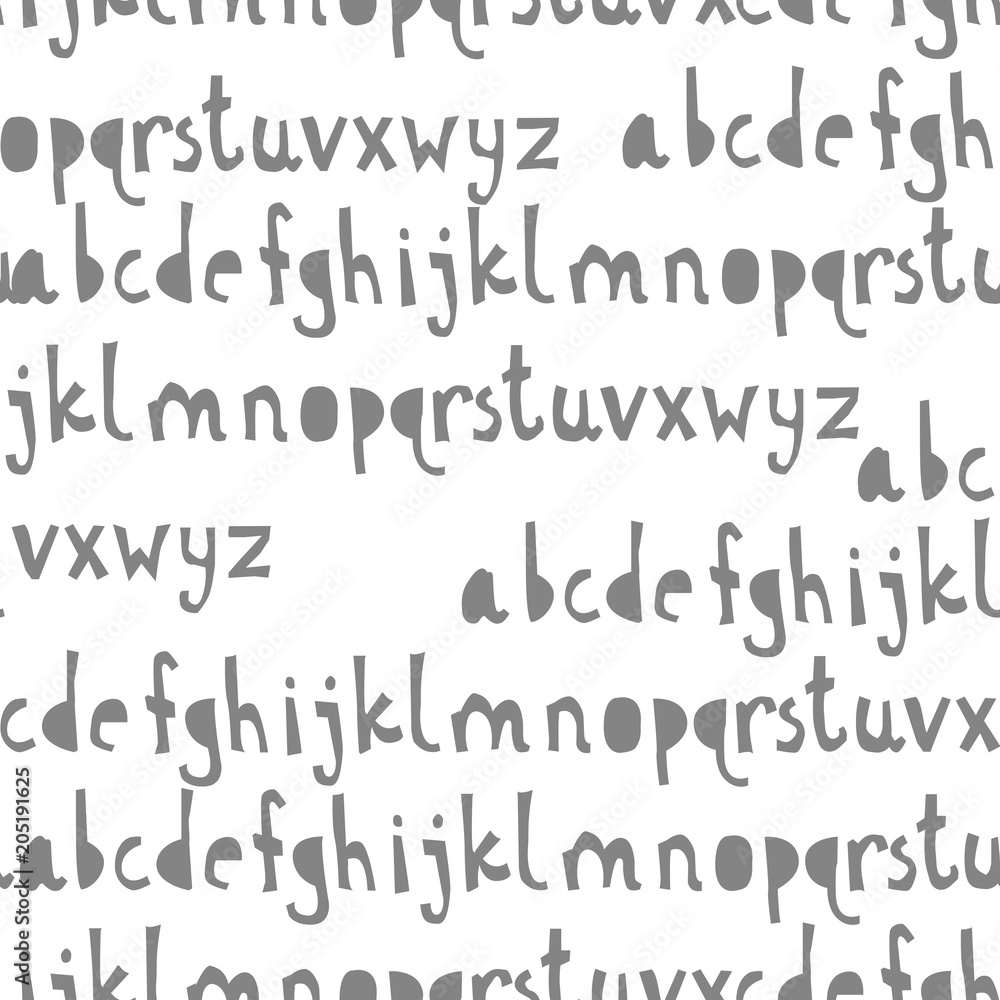 ijklmnopqrstuvxcdefgh
opqrstuvxwyz abcdefgh
uabcdefghijklmnopqrstu
jklmnopqrstuvxwyz
abc
vxwyz abcdefghijkl
cdefghijklmnopqrstuvx
abcdefghijklmnopqrstu
ijklmnopqrstuvxcdefgh
Adobe Stock | #205191625